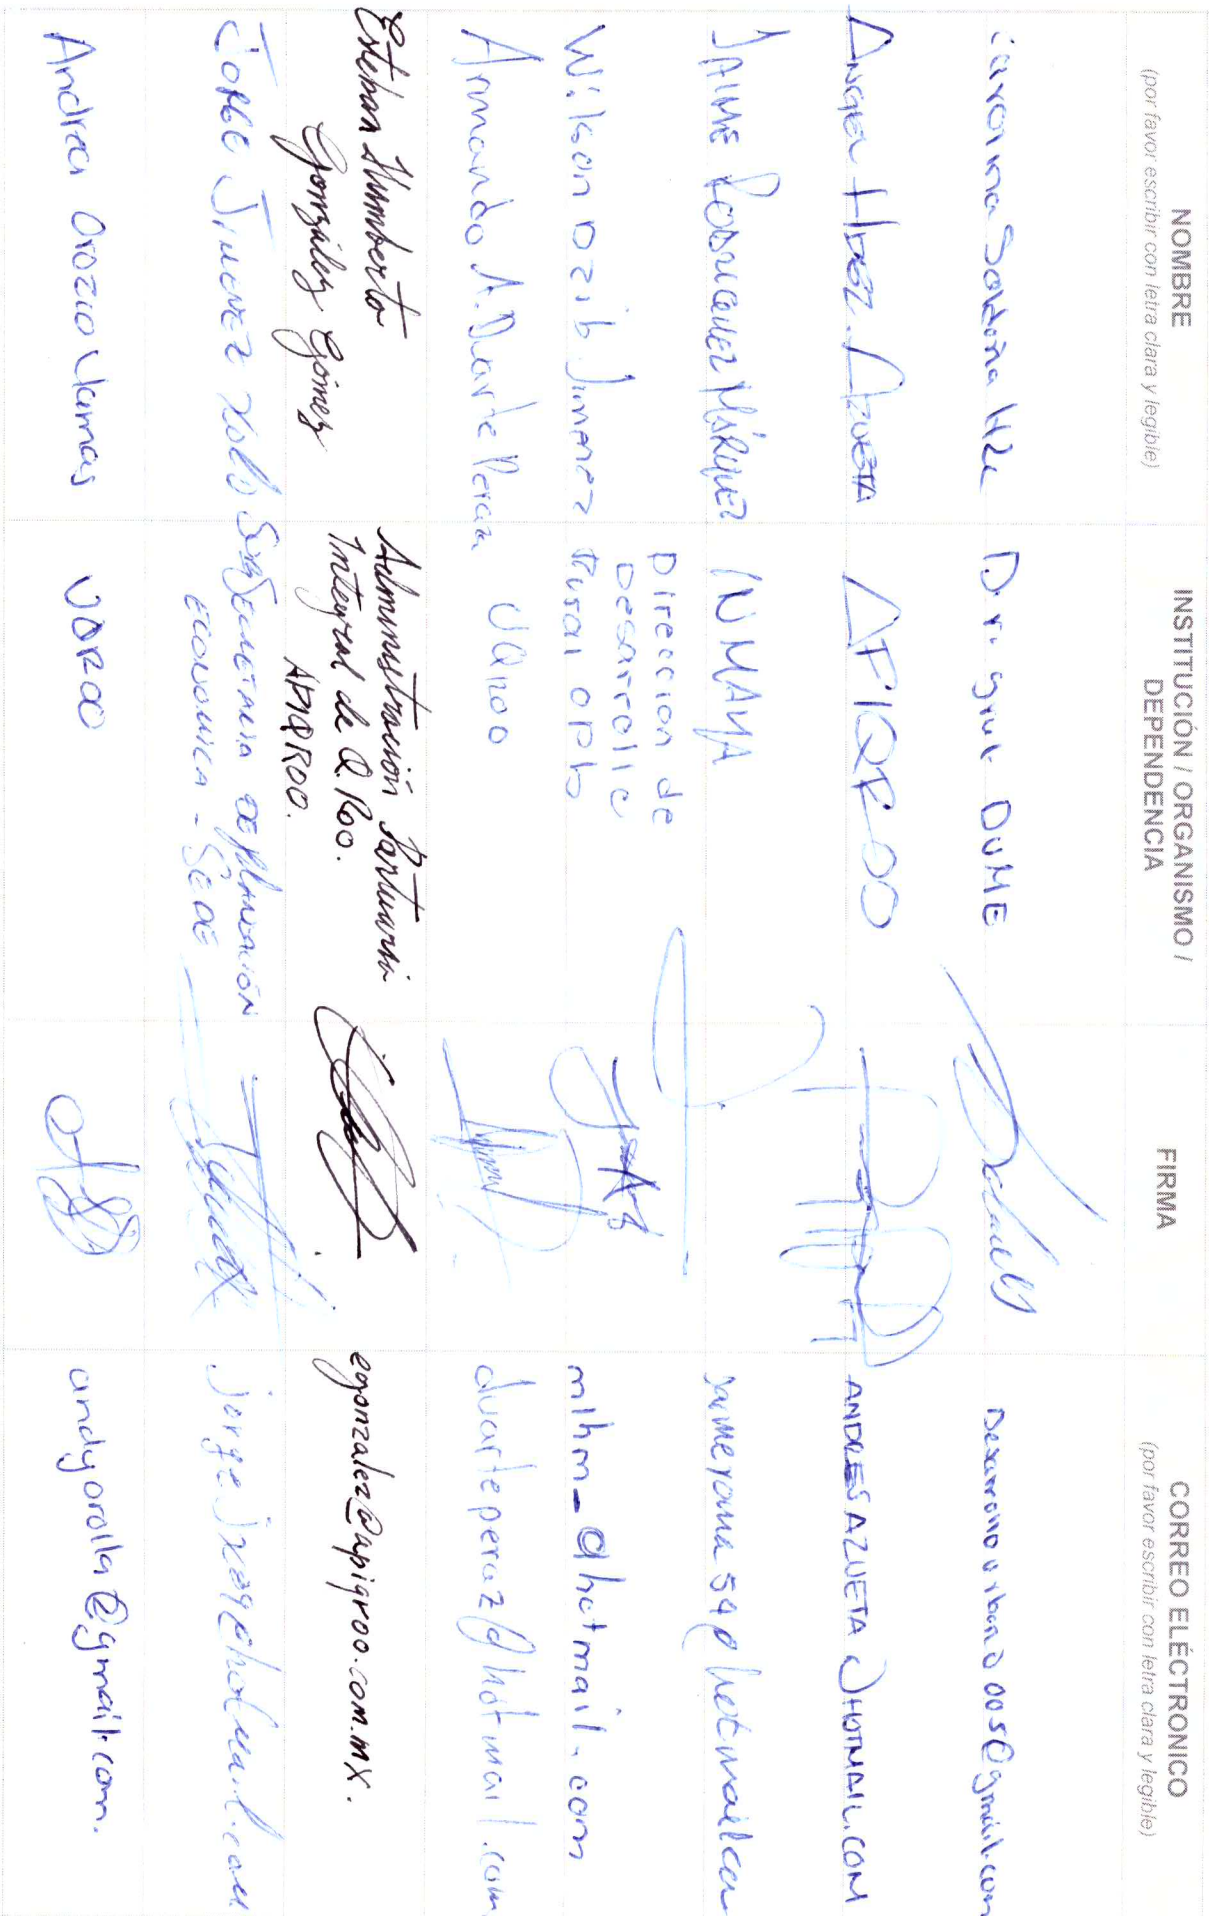 NOMBRE
(por favor escribir con letra clara y legible)
INSTITUCIÓN / ORGANISMO /
DEPENDENCIA
FIRMA
CORREO ELÉCTRONICO
(por favor escribir con letra clara y legible)
Carolina Saldaña Hdz
DUME
ANGEL HDEZ. AZUETA
APIQROO
ANDRESAZUETA@HOTMAIL.COM
JAIME RODRIGUEZ MÁRQUEZ
INMAYA
Wilson Dzib Jimenez
Direccion de
Desarrollo
Rural OPB
mlhm_@hotmail.com
Armando A. Duarte Peraza
UQROO
duarteperaz@hotmail.com
Esteban Humberto
González Gómez
Administración Portuaria
Integral de Q. Roo.
APIQROO.
egonzalez@apiqroo.com.mx.
JORGE JIMENEZ XOLO
SUBSECRETARIA DE PLANEACIÓN
ECONOMICA - SEDE
Andrea Orozco Llamas
UQROO
andyorolla@gmail.com.